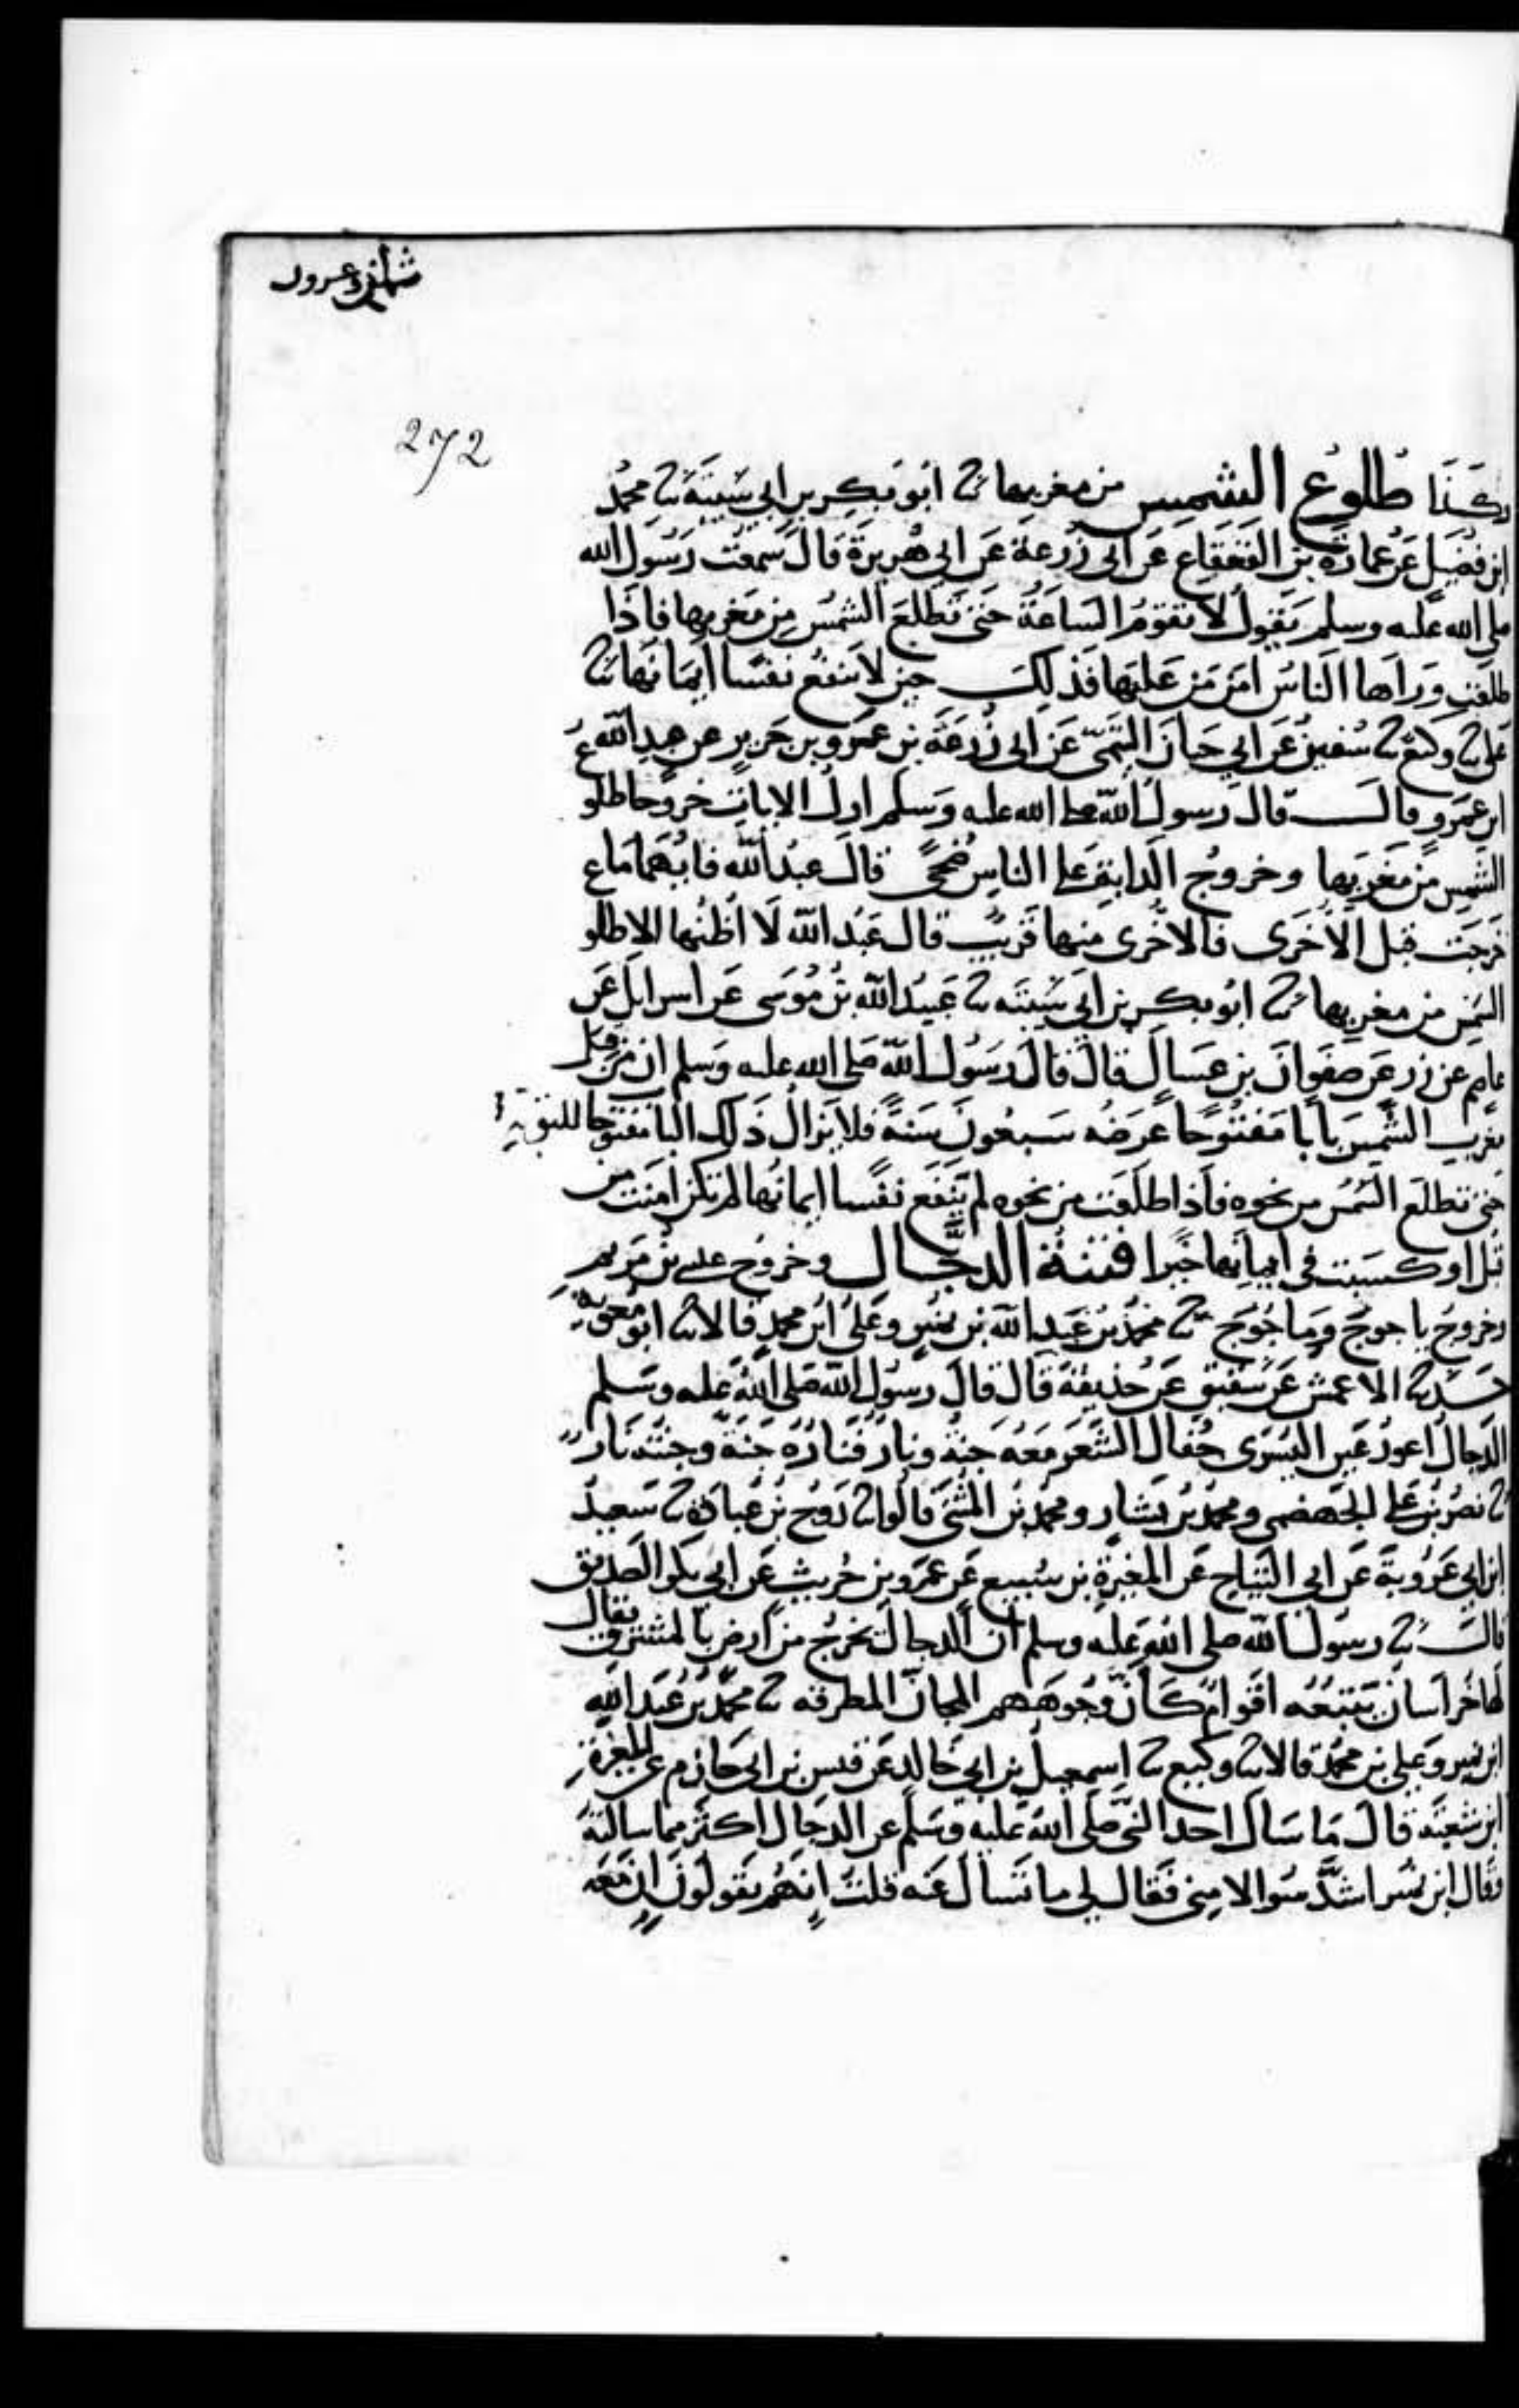 272
طلوع الشمس من مغربها ثنا ابو بكر بن ابي شيبة ثنا محمد
ابن فضيل عن عمارة بن القعقاع عن ابي زرعة عن ابي هريرة قال سمعت رسول الله
صلى الله عليه وسلم يقول لا تقوم الساعة حتى تطلع الشمس من مغربها فاذا
طلعت وراها الناس امن من عليها فذلك حين لا ينفع نفسا ايمانها ثنا
على ثنا وكيع ثنا سفين عن ابي حيان التيمي عن ابي زرعة بن عمرو بن جرير عن عبد الله
ابن عمرو قال قال رسول الله صلى الله عليه وسلم اول الايات خروجا طلو
الشمس من مغربها وخروج الدابة على الناس ضحى قال عبد الله فايهما ما
خرجت قبل الاخرى فالاخرى منها قريب قال عبد الله لا اظنها الا طلو
الشمس من مغربها ثنا ابو بكر بن ابي شيبة ثنا عبيد الله بن موسى عن اسرايل عن
عاصم عن زر عن صفوان بن عسال قال قال رسول الله صلى الله عليه وسلم ان من قبل
مغرب الشمس بابا مفتوحا عرضه سبعون سنة فلا يزال ذلك البا مفتوحا للتوبة
حتى تطلع الشمس من نحوه فاذا طلعت من نحوه لم ينفع نفسا ايمانها لم تكن امنت من
قبل او كسبت في ايمانها خيرا فتنة الدجال وخروج عيسى بن مريم
وخروج ياجوج وماجوج ثنا محمد بن عبد الله بن نمير وعلي ابن محمد قالا ثنا ابو معوية
ثنا الاعمش عن شقيق عن حذيفة قال قال رسول الله صلى الله عليه وسلم
الدجال اعور عين اليسرى جفال الشعر معه جنة ونار فناره جنة وجنته نار
ثنا نصر بن علي الجهضمي ومحمد بن بشار ومحمد بن المثنى قالوا ثنا روح بن عبادة ثنا سعيد
ابن ابي عروبة عن ابي التياح عن المغيرة بن سبيع عن عمرو بن حريث عن ابي بكر الصديق
قال ثنا رسول الله صلى الله عليه وسلم ان الدجال يخرج من ارض بالمشرق يقال
لها خراسان يتبعه اقوام كان وجوههم المجان المطرقة ثنا محمد بن عبد الله
ابن نمير وعلي بن محمد قالا ثنا وكيع ثنا اسمعيل بن ابي خالد عن قيس بن ابي حازم عن المغيرة
ابن شعبة قال ما سال احد النبي صلى الله عليه وسلم عن الدجال اكثر مما سالته
وقال ابن نمير اشد سوالا مني فقال لي ما تسال عنه قلت انهم يقولون ان معه